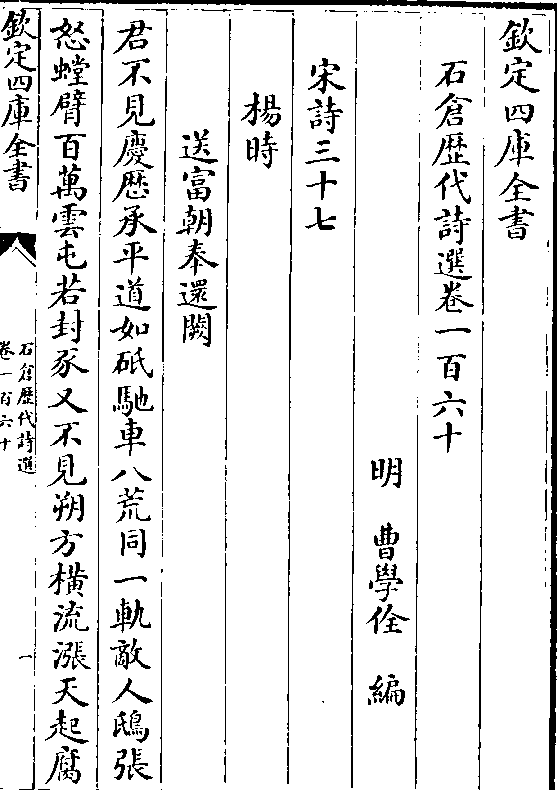 欽定四庫全書
石倉歴代詩選卷一百六十
明　曹學佺　編
宋詩三十七
楊時
送富朝奉還闕
君不見慶歴承平道如砥馳車八荒同一軌敵人鴟張
怒螳臂百萬雲屯若封豕又不見朔方橫流漲天起腐
欽定四庫全書
石倉歴代詩選
卷一百六十
一